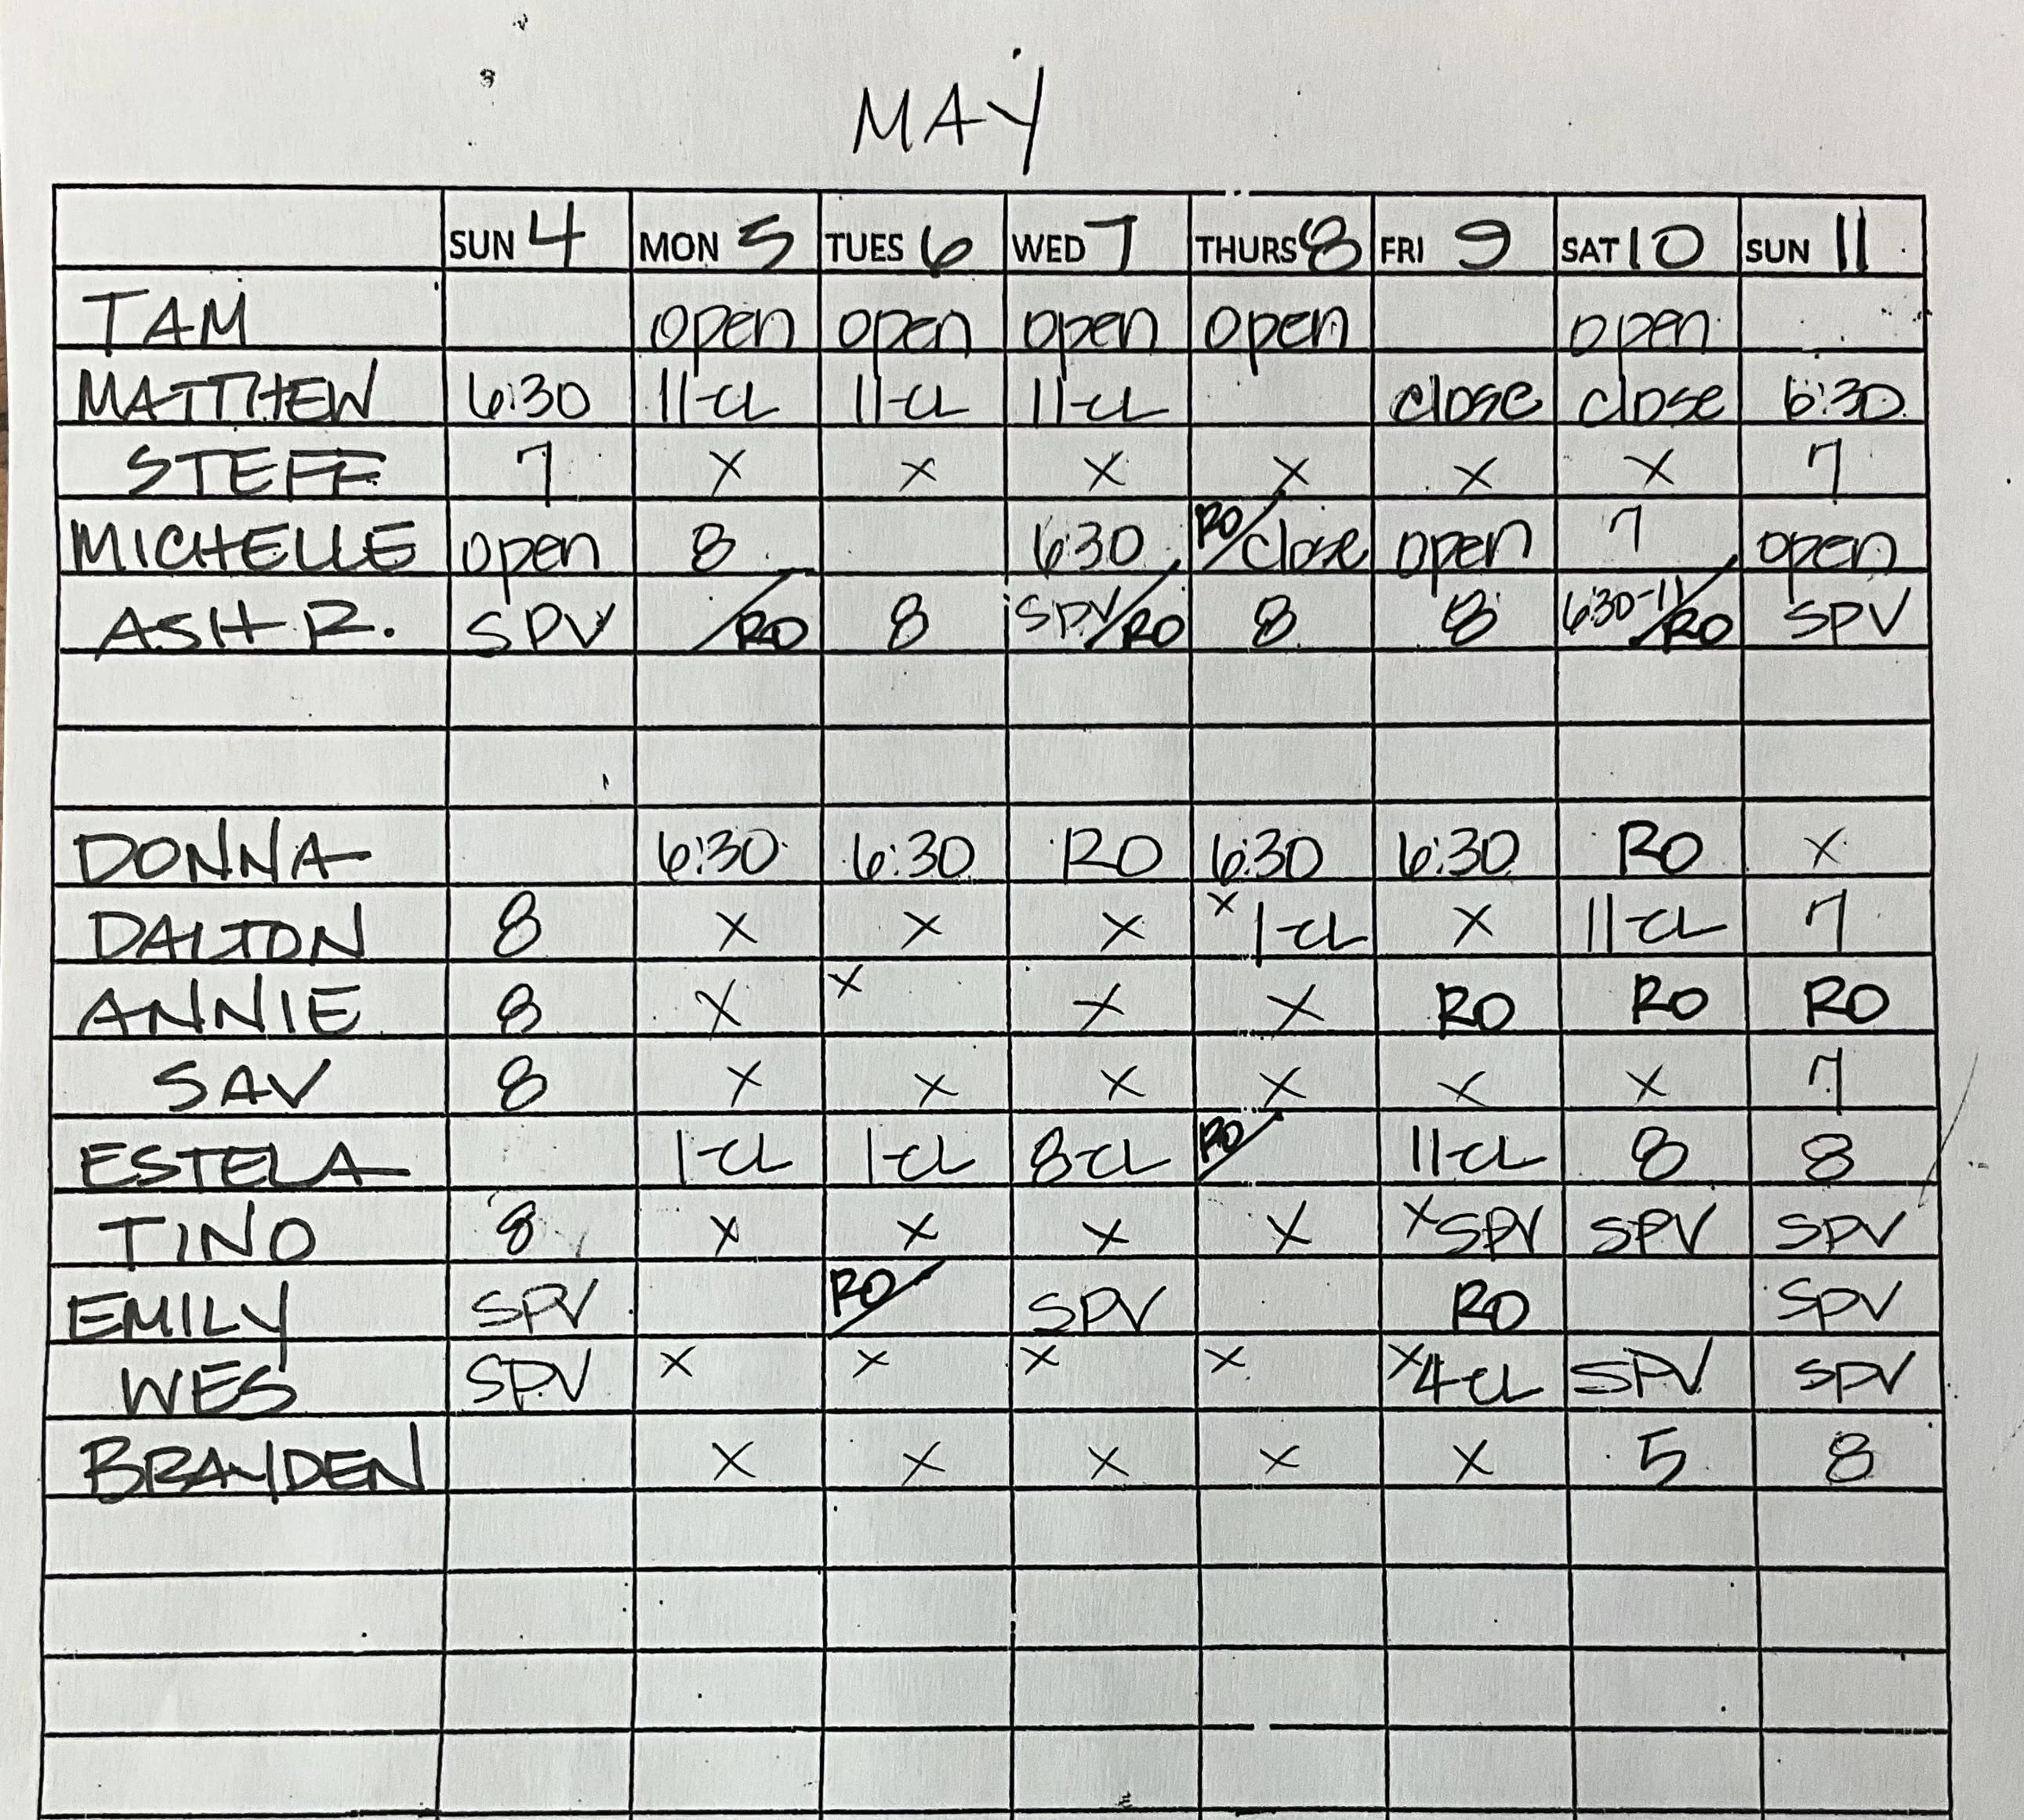 MAY
SUN 4 MON 5 TUES 6 WED 7 THURS 8 FRI 9 SAT 10 SUN 11
TAM open open open open open
MATTHEW 6:30 11-CL 11-CL 11-CL close close 6:30
STEFF 7 X X X X X X 7
MICHELLE open 8 6:30 RO/close open 7 open
ASH R. SPV /RO 8 SPV/RO 8 8 6:30-11/RO SPV
DONNA 6:30 6:30 RO 6:30 6:30 RO X
DALTON 8 X X X X 1-CL X 11-CL 7
ANNIE 8 X X X X RO RO RO
SAV 8 X X X X X X 7
ESTELA 1-CL 1-CL 8-CL RO/ 11-CL 8 8
TINO 8 X X X X X SPV SPV SPV
EMILY SPV RO/ SPV RO SPV
WES SPV X X X X X 4-CL SPV SPV
BRAYDEN X X X X X 5 8